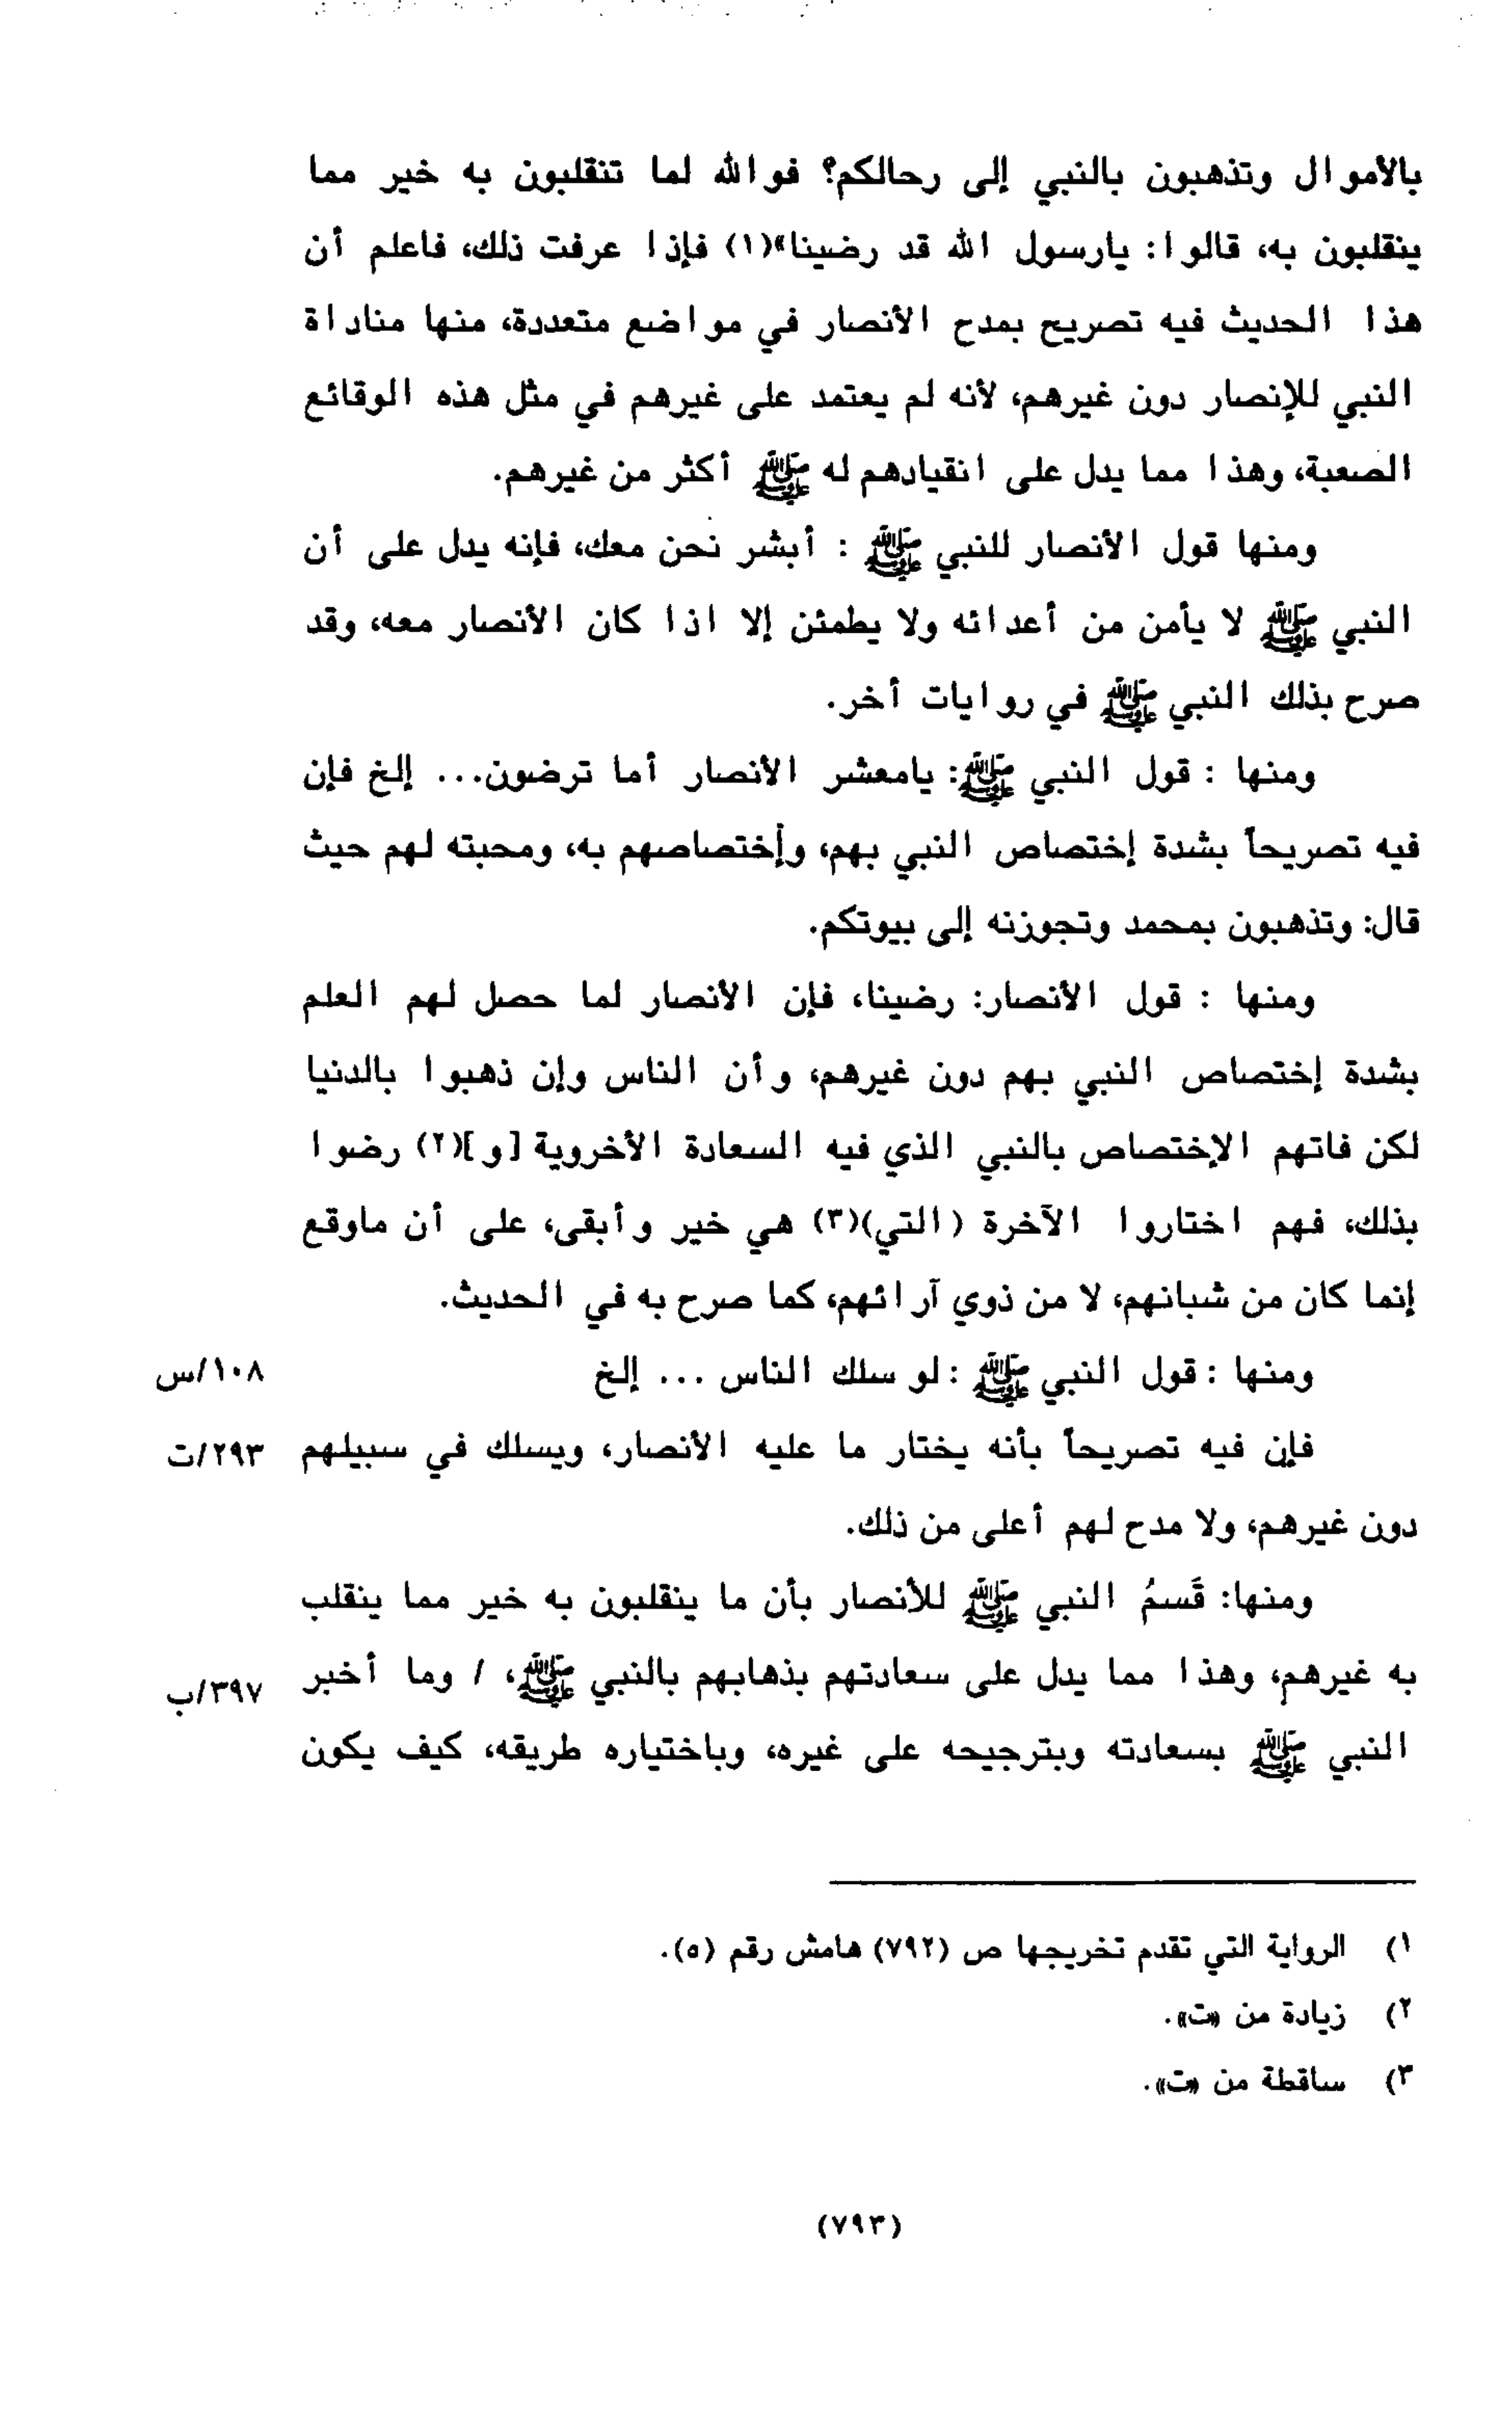 بالأموال وتذهبون بالنبي إلى رحالكم؟ فوالله لما تنقلبون به خير مما
ينقلبون به، قالوا: يارسول الله قد رضينا»(١) فإذا عرفت ذلك، فاعلم أن
هذا الحديث فيه تصريح بمدح الأنصار في مواضع متعددة، منها مناداة
النبي للإنصار دون غيرهم، لأنه لم يعتمد على غيرهم في مثل هذه الوقائع
الصعبة، وهذا مما يدل على انقيادهم له ﷺ أكثر من غيرهم.
ومنها قول الأنصار للنبي ﷺ : أبشر نحن معك، فإنه يدل على أن
النبي ﷺ لا يأمن من أعدائه ولا يطمئن إلا اذا كان الأنصار معه، وقد
صرح بذلك النبي ﷺ في روايات أخر.
ومنها : قول النبي ﷺ: يامعشر الأنصار أما ترضون... إلخ فإن
فيه تصريحاً بشدة إختصاص النبي بهم، وإختصاصهم به، ومحبته لهم حيث
قال: وتذهبون بمحمد وتجوزنه إلى بيوتكم.
ومنها : قول الأنصار: رضينا، فإن الأنصار لما حصل لهم العلم
بشدة إختصاص النبي بهم دون غيرهم، وأن الناس وإن ذهبوا بالدنيا
لكن فاتهم الإختصاص بالنبي الذي فيه السعادة الأخروية [و](٢) رضوا
بذلك، فهم اختاروا الآخرة (التي)(٣) هي خير وأبقى، على أن ماوقع
إنما كان من شبانهم، لا من ذوي آرائهم، كما صرح به في الحديث.
ومنها : قول النبي ﷺ : لو سلك الناس ... إلخ ١٠٨/س
فإن فيه تصريحاً بأنه يختار ما عليه الأنصار، ويسلك في سبيلهم ٢٩٣/ت
دون غيرهم، ولا مدح لهم أعلى من ذلك.
ومنها: قَسمُ النبي ﷺ للأنصار بأن ما ينقلبون به خير مما ينقلب
به غيرهم، وهذا مما يدل على سعادتهم بذهابهم بالنبي ﷺ، / وما أخبر ٣٩٧/ب
النبي ﷺ بسعادته وبترجيحه على غيره، وباختياره طريقه، كيف يكون
١) الرواية التي تقدم تخريجها ص (٧٩٢) هامش رقم (٥).
٢) زيادة من «ت».
٣) ساقطة من «ت».
(٧٩٣)